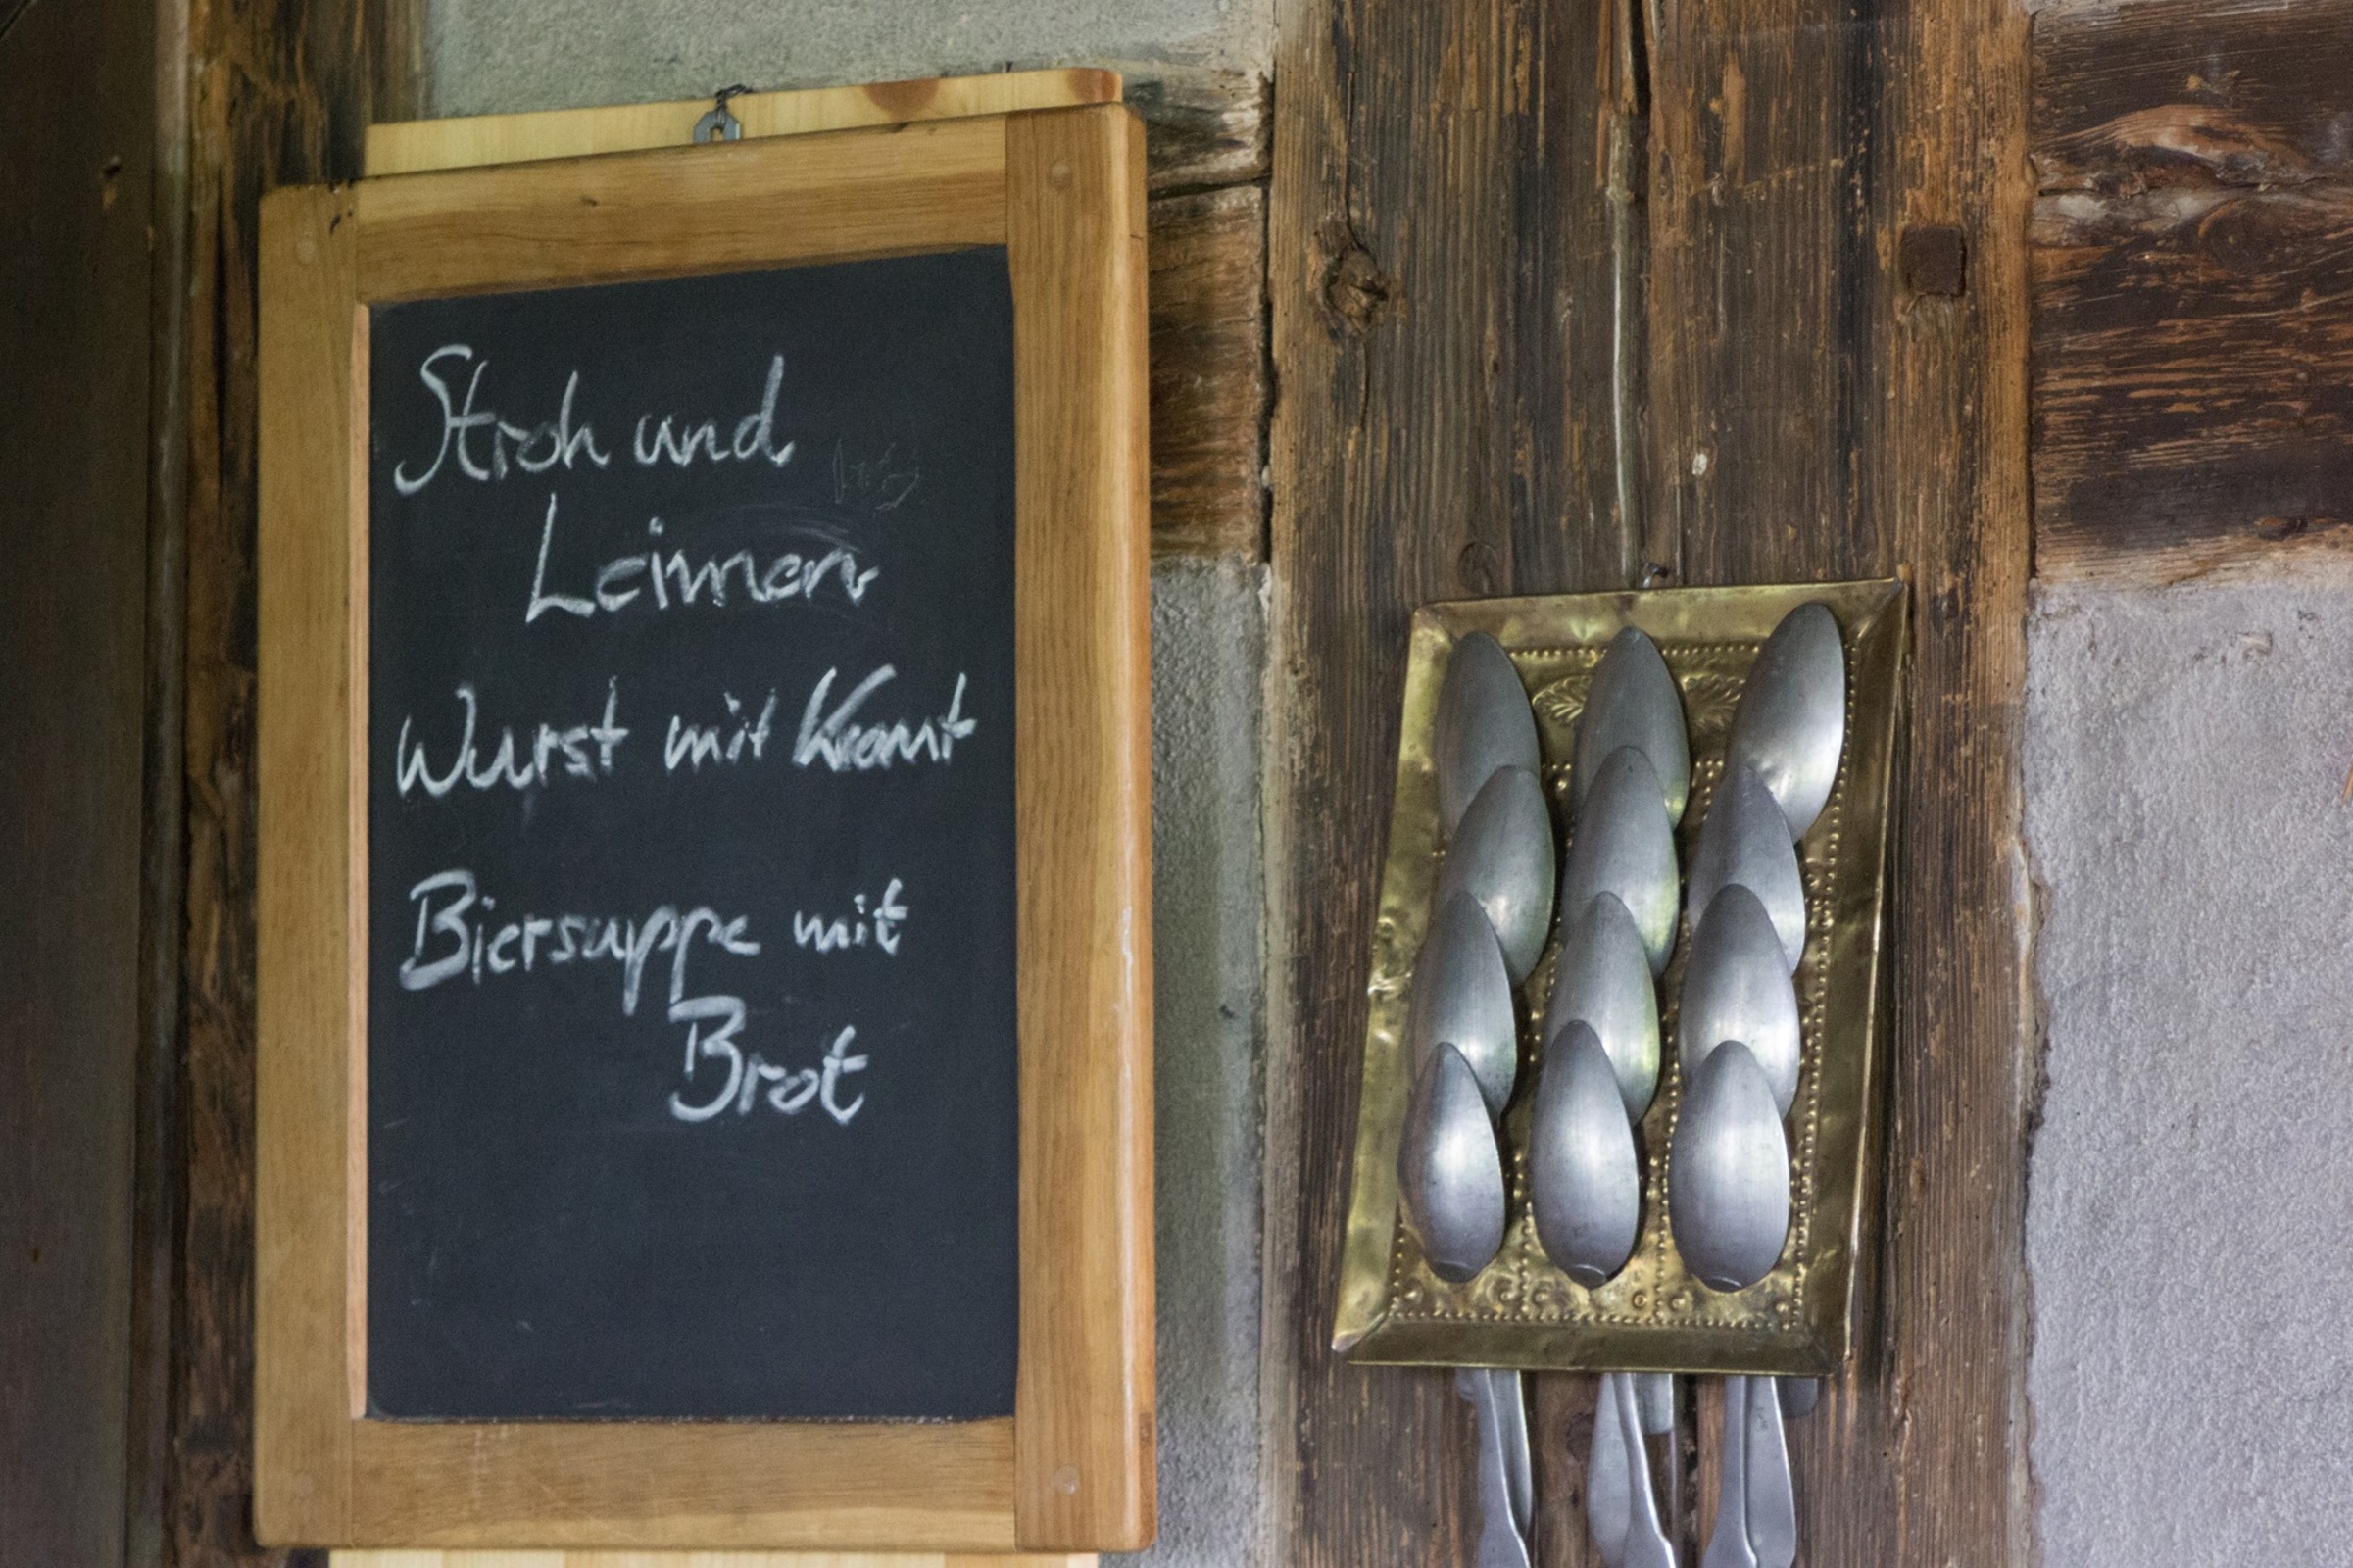 Stroh und
Leimen
Wurst mit Kraut
Biersuppe mit
Brot